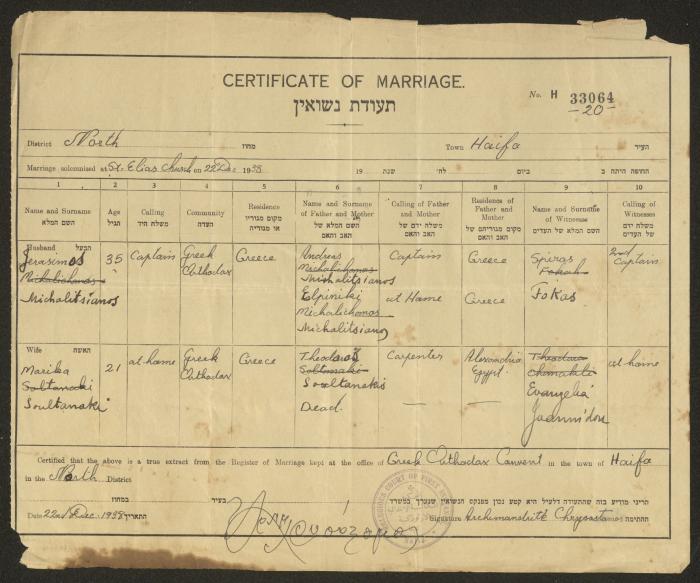 CERTIFICATE OF MARRIAGE.
תעודת נשואין
No. H 33064
-20-
District North מחוז Town Haifa העיר
Marriage solemnised at St. Elias Church on 22 Dec 1938 19 שנת לח' ביום החופה היתה ב
1 2 3 4 5 6 7 8 9 10
Name and Surname Age Calling Community Residence Name and Surname of Father and Mother Calling of Father and Mother Residence of Father and Mother Name and Surname of Witnesses Calling of Witnesses
השם המלא הגיל משלח היד העדה מקום מגוריו או מגוריה השם המלא של האב והאם משלוח ידם של האב והאם מקום מגוריהם של האב והאם השם המלא של העדים משלוח ידם של העדים
Husband הבעל
Jerasimos 35 Captain Greek Orthodox Greece Andreas Captain Greece Spiros 2nd Captain
Michalichomas Michalichomas Fokah
Michalitsianos Michalitsianos Fokas
Elpiniki at Home Greece
Michalichomas
Michalitsianos
Wife האשה
Marika 21 at home Greek Orthodox Greece Theodoros Carpenter Alexandria Egypt. at home
Soltanaki Soltanaki
Soultanaki Soultanakis Evangelia
Dead. — — Joannidou
Certified that the above is a true extract from the Register of Marriage kept at the office of Greek Orthodox Convent in the town of Haifa
in the North District
הריני מודיע בזה שהתעודה דלעיל היא קטע נכון מפנקס הנשואין שנערך במשרד
בעיר במחוז
Date 22nd Dec. 1938 התאריך Signature Archimandrite Chrysostomos החתימה